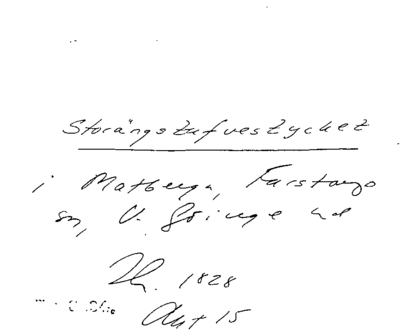 Storängstufvestycket
i Matberga, Farstorps
sn, V. Göinge hd
Th. 1828
Akt 15